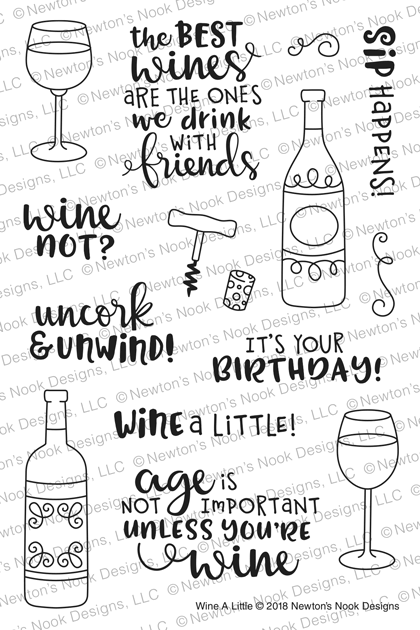 the BEST
wines
ARE THE ONES
we drink
WITH
friends
Sip HAPPENS!
wine
NOT?
uncork
& UNWIND!
IT'S YOUR
BIRTHDAY!
WINE a LITTLE!
age IS
NOT IMPORTANT
UNLESS YOU'RE
wine
Wine A Little © 2018 Newton's Nook Designs, LLC
© Newton's Nook Designs, LLC